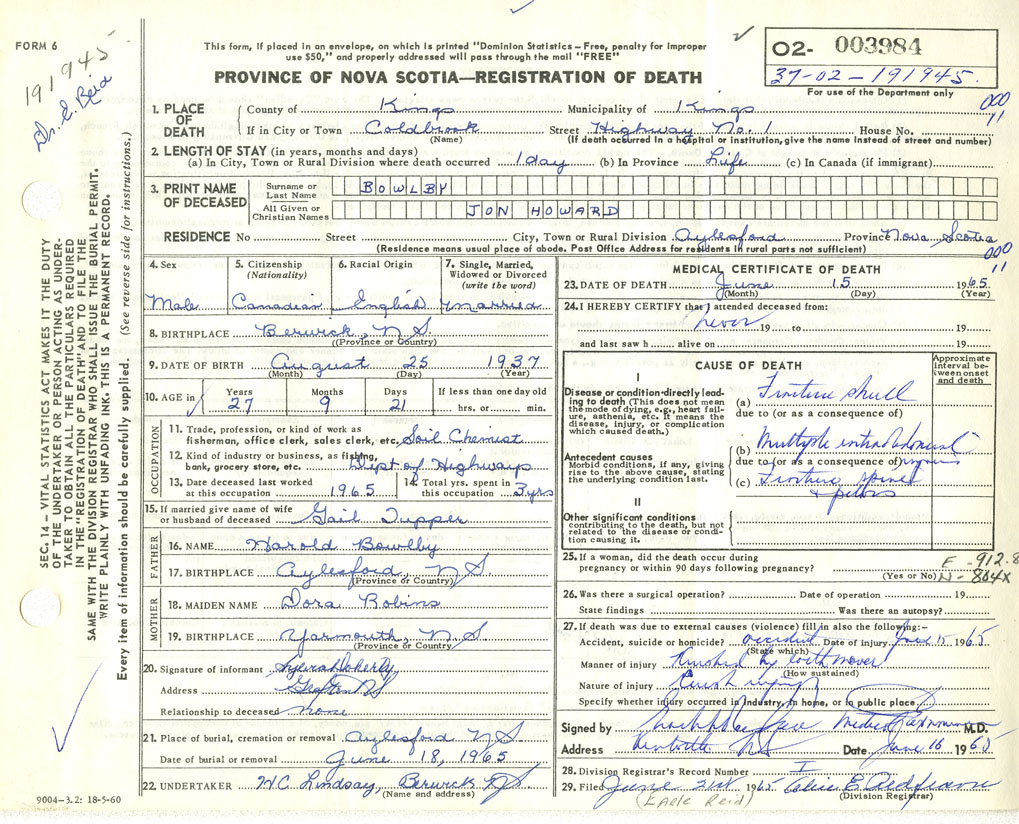 FORM 6
191945
Dr. E. Reid
This form, if placed in an envelope, on which is printed "Dominion Statistics – Free, penalty for improper
use $50," and properly addressed will pass through the mail "FREE"
PROVINCE OF NOVA SCOTIA—REGISTRATION OF DEATH
02- 003984
37-02-191945.
For use of the Department only
000
11
1. PLACE OF DEATH County of Kings Municipality of Kings
If in City or Town Coldbrook Street Highway No. 1 House No.
(Name) (If death occurred in a hospital or institution, give the name instead of street and number)
2. LENGTH OF STAY (in years, months and days)
(a) In City, Town or Rural Division where death occurred 1 day (b) In Province Life (c) In Canada (if immigrant)
3. PRINT NAME OF DECEASED Surname or Last Name BOWLBY
All Given or Christian Names JON HOWARD
RESIDENCE No Street City, Town or Rural Division Aylesford Province Nova Scotia
(Residence means usual place of abode. Post Office Address for residents in rural parts not sufficient)
000
11
4. Sex Male
5. Citizenship (Nationality) Canadian
6. Racial Origin English
7. Single, Married, Widowed or Divorced (write the word) Married
8. BIRTHPLACE Berwick, N S
(Province or Country)
9. DATE OF BIRTH August 25 1937
(Month) (Day) (Year)
10. AGE in Years 27 Months 9 Days 21 If less than one day old hrs. or min.
OCCUPATION
11. Trade, profession, or kind of work as
fisherman, office clerk, sales clerk, etc. Soil Chemist
12. Kind of industry or business, as fishing,
bank, grocery store, etc. Dept of Highways
13. Date deceased last worked at this occupation 1965
14. Total yrs. spent in this occupation 3 yrs
15. If married give name of wife
or husband of deceased Gail Tupper
FATHER
16. NAME Harold Bowlby
17. BIRTHPLACE Aylesford, N S
(Province or Country)
MOTHER
18. MAIDEN NAME Dora Robins
19. BIRTHPLACE Yarmouth, N S
(Province or Country)
20. Signature of informant Doherty
Address Grafton NS
Relationship to deceased none
21. Place of burial, cremation or removal Aylesford N S
Date of burial or removal June 18, 1965
22. UNDERTAKER H.C. Lindsay, Berwick NS
(Name and address)
9004-3.2: 18-5-60
MEDICAL CERTIFICATE OF DEATH
23. DATE OF DEATH June 15 1965
(Month) (Day) (Year)
24. I HEREBY CERTIFY that I attended deceased from:
never 19 to 19
and last saw h alive on 19
CAUSE OF DEATH
Approximate interval between onset and death
I
Disease or condition directly leading
to death (This does not mean
the mode of dying, e.g., heart failure,
asthenia, etc. It means the
disease, injury, or complication
which caused death.)
(a) Fracture skull
due to (or as a consequence of)
Antecedent causes
Morbid conditions, if any, giving
rise to the above cause, stating
the underlying condition last.
(b) Multiple intraabdominal injuries
due to (or as a consequence of)
(c) Fracture spine
& pelvis
II
Other significant conditions
contributing to the death, but not
related to the disease or condition
causing it.
25. If a woman, did the death occur during
pregnancy or within 90 days following pregnancy?
(Yes or No)
E - 912.8
N - 864X
26. Was there a surgical operation? Date of operation 19
State findings Was there an autopsy?
27. If death was due to external causes (violence) fill in also the following:–
Accident, suicide or homicide? accident Date of injury June 15 1965
(State which)
Manner of injury Crushed by earth mover
(How sustained)
Nature of injury Crush injury
Specify whether injury occurred in industry, in home, or in public place
Signed by Medical Examiner M.D.
Address Kentville NS Date June 16 1965
28. Division Registrar's Record Number I
29. Filed June 21st 1965
(Division Registrar)
SEC. 14 – VITAL STATISTICS ACT MAKES IT THE DUTY
OF THE UNDERTAKER OR PERSON ACTING AS UNDERTAKER
TO OBTAIN ALL THE PARTICULARS REQUIRED
IN THE "REGISTRATION OF DEATH" AND TO FILE THE
SAME WITH THE DIVISION REGISTRAR WHO SHALL ISSUE THE BURIAL PERMIT.
WRITE PLAINLY WITH UNFADING INK. THIS IS A PERMANENT RECORD.
Every item of information should be carefully supplied. (See reverse side for instructions.)